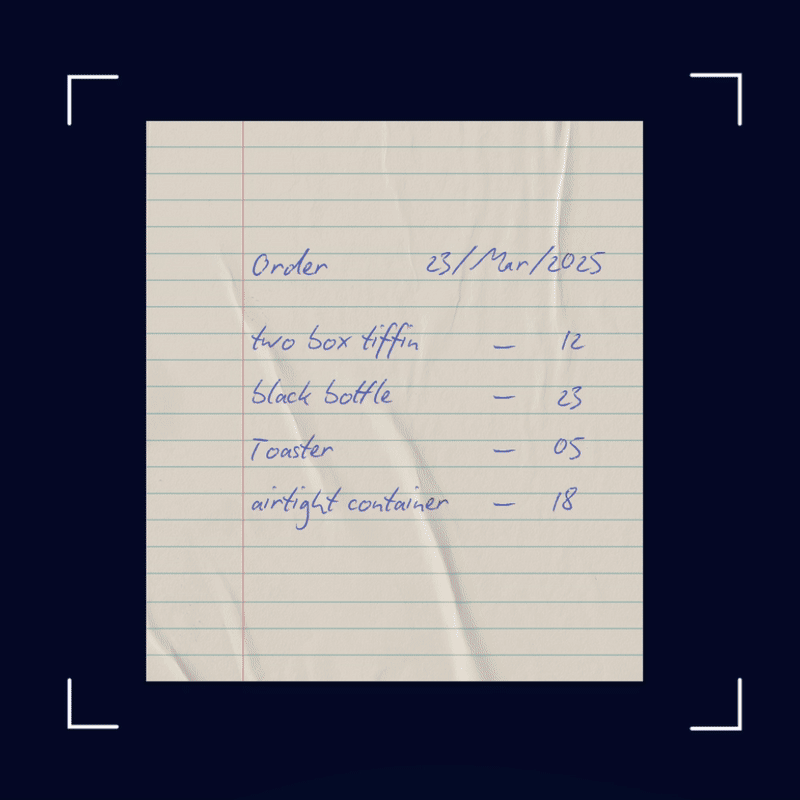 Order 23/Mar/2025
two box tiffin — 12
black bottle — 23
Toaster — 05
airtight container — 18